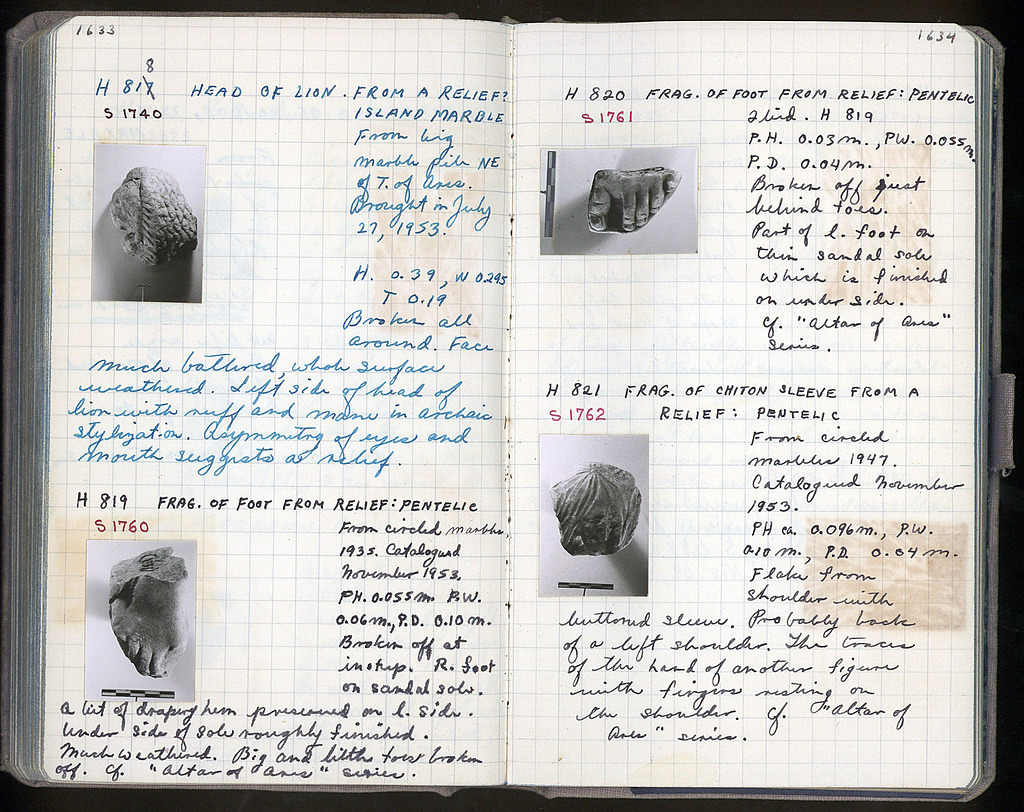 1633
8
H 817 HEAD OF LION. FROM A RELIEF?
S 1740 ISLAND MARBLE
From big
marble pile NE
of T. of Ares.
Brought in July
27, 1953.
H. 0.39, W 0.295
T 0.19
Broken all
around. Face
much battered, whole surface
weathered. Left side of head of
lion with ruff and mane in archaic
stylization. Asymmetry of eyes and
mouth suggests a relief.
H 819 FRAG. OF FOOT FROM RELIEF: PENTELIC
S 1760 From circled marbles,
1935. Catalogued
November 1953.
PH. 0.055m. P.W.
0.06m., P.D. 0.10m.
Broken off at
instep. R. foot
on sandal sole.
A bit of drapery hem preserved on l. side.
Under side of sole roughly finished.
Much weathered. Big and little toes broken
off. Cf. "Altar of Ares" series.
1634
H 820 FRAG. OF FOOT FROM RELIEF: PENTELIC
S 1761 Ibid. H 819
P.H. 0.03m., P.W. 0.055m.
P.D. 0.04m.
Broken off just
behind toes.
Part of l. foot on
thin sandal sole
which is finished
on under side.
Cf. "Altar of Ares"
series.
H 821 FRAG. OF CHITON SLEEVE FROM A
S 1762 RELIEF: PENTELIC
From circled
marbles 1947.
Catalogued November
1953.
PH ca. 0.096m., P.W.
0.10 m., P.D. 0.04 m.
Flake from
shoulder with
buttoned sleeve. Probably back
of a left shoulder. The traces
of the hand of another figure
with fingers resting on
the shoulder. Cf. "Altar of
Ares" series.